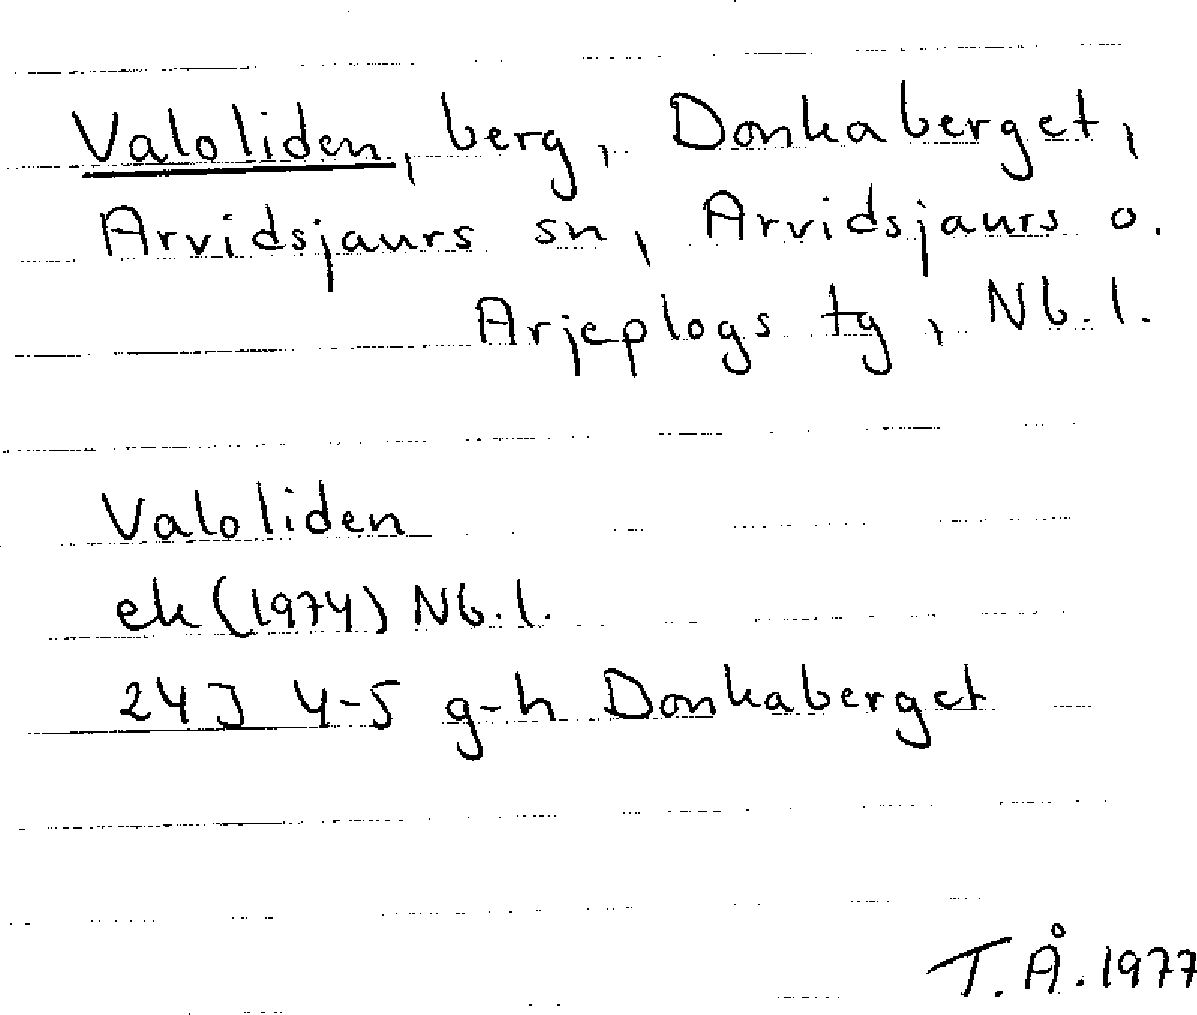 Valoliden, berg, Donkaberget,
Arvidsjaurs sn, Arvidsjaurs o.
Arjeplogs tg, Nb.l.
Valoliden
ek (1974) Nb.l.
24J 4-5 g-h Donkaberget
T.Å. 1977